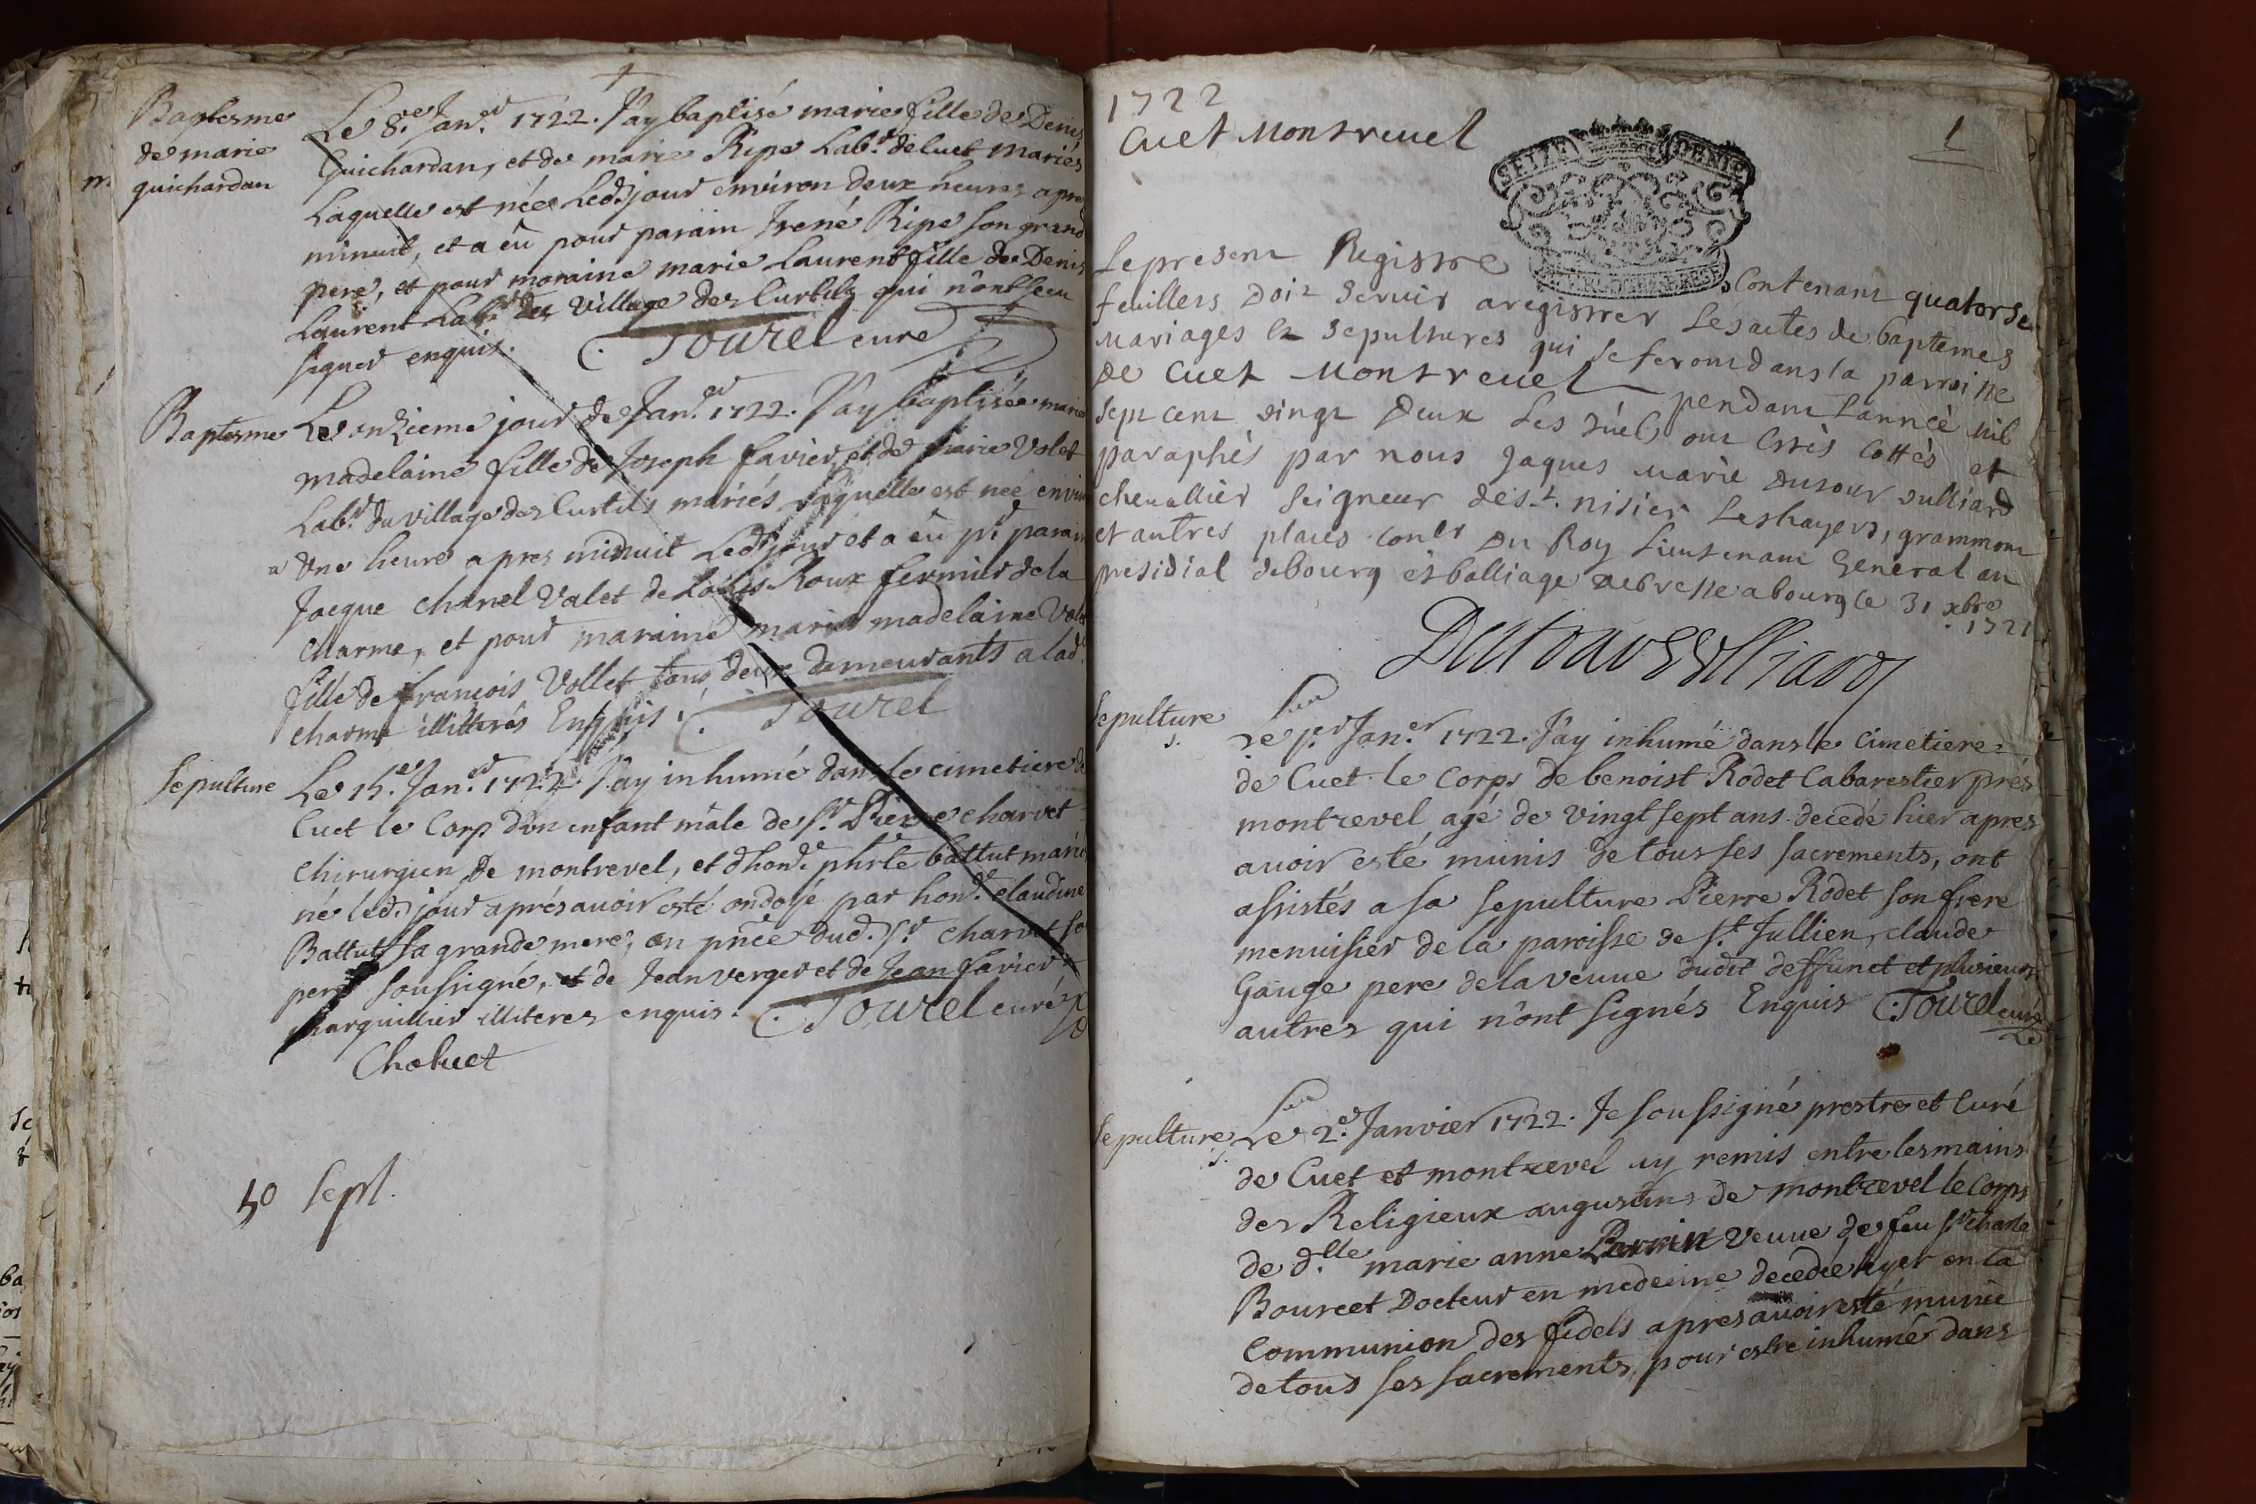 Baptesme
de marie
guichardan
Le 8.e Jan.er 1722. J'ay baptisé marie fille de Denis
Guichardan, et de marie Ripe Lab.r de Cuet mariés
Laquelle est née Led. jour environ deux heures apres
minuit, et a êu pour parain Irené Ripe son grand
pere, et pour maraine marie Laurent fille de Denis
Laurent Lab.r du village des Curtils qui n'ont sceu
signer enquis. C. Tourel curé
Baptesme
Le onzieme jour de Jan.er 1722. J'ay baptisée marie
madelaine fille de Joseph favier, et de marie Volet
Lab.r du village des Curtils mariés laquelle est née environ
une heure apres minuit Led. jour et a êu p.r parain
Jacque Chanel Valet de Loüis Roux fermier de la
Charme, et pour maraine marie madelaine Volet
fille de françois Vollet tous deux demeurants a lad.
charme illitterés Enquis. C. Tourel
Sepulture
Le 15.e Jan.er 1722. J'ay inhumé dans le cimetiere de
Cuet le Corp d'un enfant mâle de s.r Pierre charvet
chirurgien De montrevel, et d'hon.e phte battut mariés
né led. jour aprés avoir esté ondoïé par hon.e claudine
Battut sa grande mere, en pñce dud. s.r charvet
pere soussigné, et de Jean verger et de Jean favier
marguillier illiteres enquis. C. Tourel curé
Chaluet
50 sept.
1722
Cuet Montreuel
1
SEIZE DENIE
Le present Registre contenant quatorse
feuillets Doit seruir a registrer Les actes de baptemes
Mariages et sepultures qui se feront dans la parroisse
De Cuet Montreuel pendant Lanneè mil
sept cent vingt Deux Les quels ont estès cottès et
paraphès par nous Jaques Marie Dutour Vulliard
cheuallier seigneur de s.t nisier Leshayers, grammont
et autres places con.er Du Roy Lieutenant General au
presidial debourg et balliage de bresse a bourg le 31 xbre
1721
Dutour Vulliard
Sepulture
s.
Le p.er Jan.er 1722. J'ay inhumé dans le Cimetiere
de Cuet le Corps de benoist Rodet Cabarestier prés
montrevel agé de vingt sept ans decedé hier apres
auoir esté munis de tous ses sacrements, ont
assistés a sa sepulture Pierre Rodet son frere
menuisier de la paroisse de s.t Jullien, claude
Gauge pere de la veuue dudit deffunct et plusieurs
autres qui n'ont signés Enquis C. Tourel curé
Sepulture
s.
Le 2.e Janvier 1722. Je soussigné prestre et Curé
de Cuet et montrevel ay remis entre les mains
des Religieux augustins de montrevel le corps
de d.elle marie anne Perrin veuue de feu s.r charle
Bourcet Docteur en medecine decedée hyer en la
Communion des fidels apres auoir esté munie
de tous ses sacrements, pour estre inhumé dans